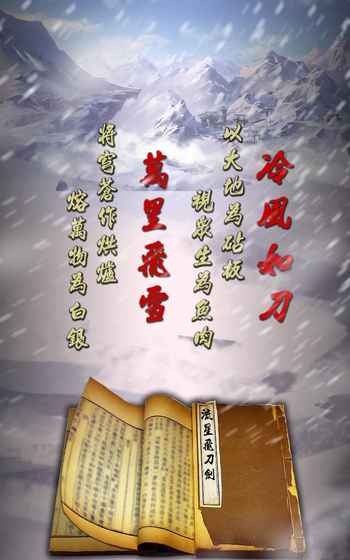 冷風如刀
以大地為砧板
視眾生為魚肉
萬里飛雪
將穹蒼作烘爐
熔萬物為白銀
流星飛刀劍